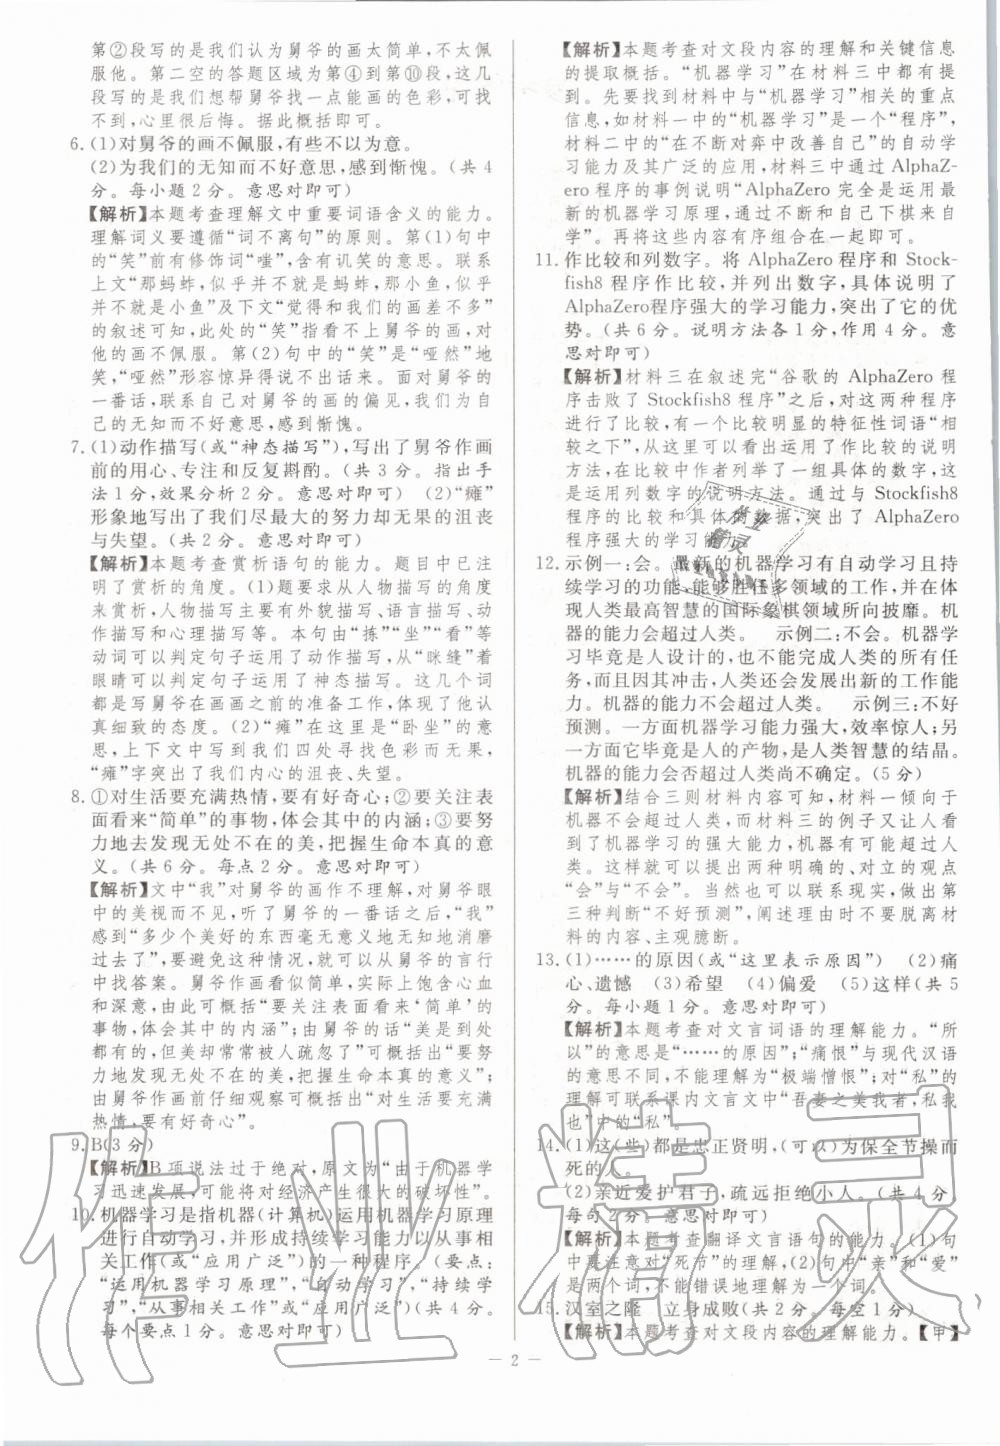 第②段写的是我们认为舅爷的画太简单,不太佩
服他。第二空的答题区域为第④到第⑩段,这几
段写的是我们想帮舅爷找一点能画的色彩,可找
不到,心里很后悔。据此概括即可。
6.(1)对舅爷的画不佩服,有些不以为意。
(2)为我们的无知而不好意思,感到惭愧。(共4
分。每小题2分。意思对即可)
【解析】本题考查理解文中重要词语含义的能力。
理解词义要遵循“词不离句”的原则。第(1)句中
的“笑”前有修饰词“嗤”,含有讥笑的意思。联系
上文“那蚂蚱,似乎并不就是蚂蚱,那小鱼,似乎
并不就是小鱼”及下文“觉得和我们的画差不多”
的叙述可知,此处的“笑”指看不上舅爷的画,对
他的画不佩服。第(2)句中的“笑”是“哑然”地
笑,“哑然”形容惊异得说不出话来。面对舅爷的
一番话,联系自己对舅爷的画的偏见,我们为自
己的无知而不好意思,感到惭愧。
7.(1)动作描写(或“神态描写”),写出了舅爷作画
前的用心、专注和反复斟酌。(共3分。指出手
法1分,效果分析2分。意思对即可)(2)“瘫”
形象地写出了我们尽最大的努力却无果的沮丧
与失望。(共2分。意思对即可)
【解析】本题考查赏析语句的能力。题目中已注
明了赏析的角度。(1)题要求从人物描写的角度
来赏析,人物描写主要有外貌描写、语言描写、动
作描写和心理描写等。本句由“拣”“坐”“看”等
动词可以判定句子运用了动作描写,从“眯缝”着
眼睛可以判定句子运用了神态描写。这几个词
都是写舅爷在画画之前的准备工作,体现了他认
真细致的态度。(2)“瘫”在这里是“卧坐”的意
思,上下文中写到我们四处寻找色彩而无果,
“瘫”字突出了我们内心的沮丧、失望。
8.①对生活要充满热情,要有好奇心;②要关注表
面看来“简单”的事物,体会其中的内涵;③要努
力地去发现无处不在的美,把握生命本真的意
义。(共6分。每点2分。意思对即可)
【解析】文中“我”对舅爷的画作不理解,对舅爷眼
中的美视而不见,听了舅爷的一番话之后,“我”
感到“多少个美好的东西毫无意义地无知地消磨
过去了”,要避免这种情况,可以从舅爷的言行
中找答案。舅爷作画看似简单,实际上饱含心血
和深意,由此可概括“要关注表面看来‘简单’的
事物,体会其中的内涵”;由舅爷的话“美是到处
都有的,但美却常常被人疏忽了”可概括出“要努
力地发现无处不在的美,把握生命本真的意义”;
由舅爷作画前仔细观察可概括出“对生活要充满
热情,要有好奇心”。
9.B(3分)
【解析】B项说法过于绝对,原文为“由于机器学
习迅速发展,可能将对经济产生很大的破坏性”。
10.机器学习是指机器(计算机)运用机器学习原理
进行自动学习,并形成持续学习能力以从事相
关工作(或“应用广泛”)的一种程序。(要点:
“运用机器学习原理”,“自动学习”,“持续学
习”,“从事相关工作”或“应用广泛”)(共4分。
每个要点1分。意思对即可)
【解析】本题考查对文段内容的理解和关键信息
的提取概括。“机器学习”在材料三中都有提
到。先要找到材料中与“机器学习”相关的重点
信息,如材料一中的“机器学习”是一个“程序”,
材料二中的“在不断对弈中改善自己”的自动学
习能力及其广泛的应用,材料三中通过AlphaZ-
ero程序的事例说明“AlphaZero完全是运用最
新的机器学习原理,通过不断和自己下棋来自
学”。再将这些内容有序组合在一起即可。
11.作比较和列数字。将AlphaZero程序和Stock-
fish8程序作比较,并列出数字,具体说明了
AlphaZero程序强大的学习能力,突出了它的优
势。(共6分。说明方法各1分,作用4分。意
思对即可)
【解析】材料三在叙述完“谷歌的AlphaZero程
序击败了Stockfish8程序”之后,对这两种程序
进行了比较,有一个比较明显的特征性词语“相
较之下”,从这里可以看出运用了作比较的说明
方法,在比较中作者列举了一组具体的数字,这
是运用列数字的说明方法。通过与Stockfish8
的比较和具体的数据,突出了AlphaZero
程序强大的学习能
12.示例一:会。最新的机器学习有自动学习且持
续学习的功能,能够胜任多领域的工作,并在体
现人类最高智慧的国际象棋领域所向披靡。机
器的能力会超过人类。 示例二:不会。机器学
习毕竟是人设计的,也不能完成人类的所有任
务,但因其冲击,人类还会发展出新的工作能
力。机器的能力不会超过人类。 示例三:不好
预测。一方面机器学习能力强大,效率惊人;另
一方面它毕竟是人的产物,是人类智慧的结晶。
机器的能力会否超过人类尚不确定。(5分)
【解析】结合三则材料内容可知,材料一倾向于
机器不会超过人类,而材料三的例子又让人看
到了机器学习的强大能力,机器有可能超过人
类。这样就可以提出两种明确的、对立的观点
“会”与“不会”。当然也可以联系现实,做出第
三种判断“不好预测”,阐述理由时不要脱离材
料的内容、主观臆断。
13.(1)……的原因(或“这里表示原因”) (2)痛
心、遗憾 (3)希望 (4)偏爱 (5)这样(共5
分。每小题1分。意思对即可)
【解析】本题考查对文言词语的理解能力。“所
以”的意思是“……的原因”;“痛恨”与现代汉语
的意思不同,不能理解为“极端憎恨”;对“私”的
理解可联系课内文言文中“吾妻之美我者,私我
也”中的“私”。
14.(1)这(些)都是忠正贤明,(可以)为保全节操而
死的人。
(2)亲近爱护君子,疏远拒绝小人。(共4分。
每句2分。意思对即可)
【解析】本题考查翻译文言语句的能力。(1)句
中要注意对“死节”的理解,(2)句中“亲”和“爱”
是两个词,不能错误地理解为一个词。
15.汉室之隆 立身成败(共2分。每空1分)
【解析】本题考查对文段内容的理解能力。【甲】
— 2 —
作业精灵